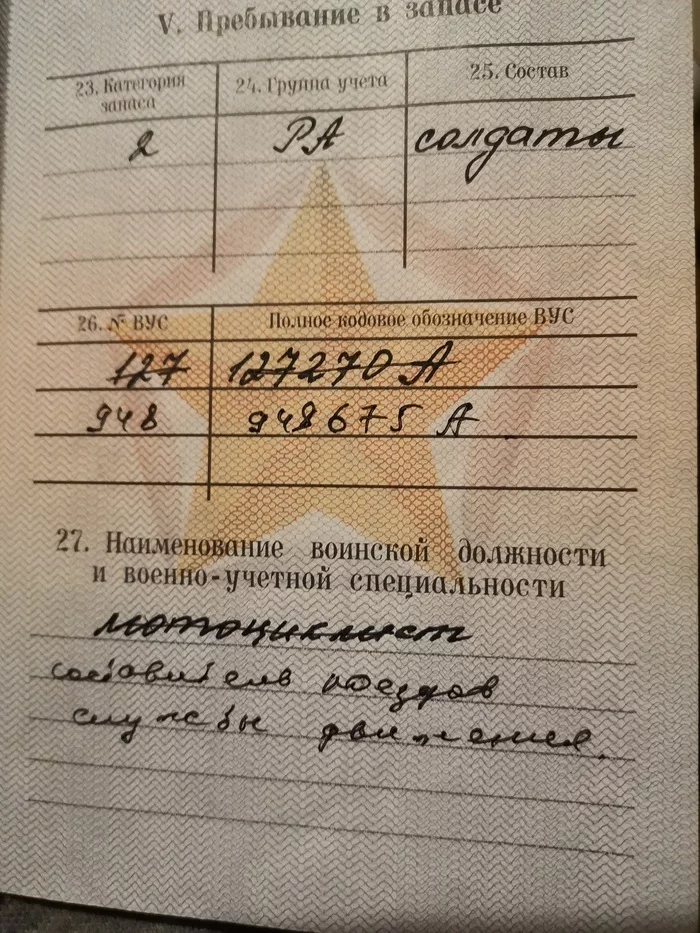 V. Пребывание в запасе
23. Категория запаса
24. Группа учета
25. Состав
2 РА солдаты
26. № ВУС Полное кодовое обозначение ВУС
127 127270 А
948 948675 А
27. Наименование воинской должности
и военно-учетной специальности
мотоциклист
составитель поездов
службы движения.